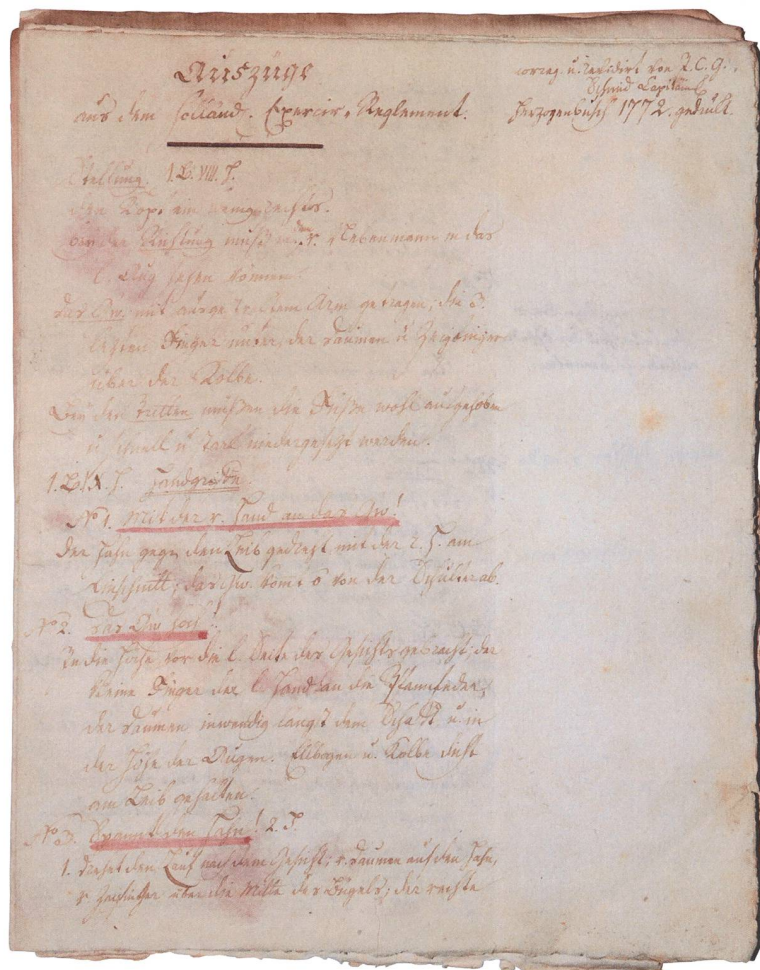 Auszüge
aus dem Holländ. Exercir-Reglement.
u. revidirt von R. C. G.
Schmid Capitain
Herzogenbusch 1772. gedruckt.
Stellung. 1. B. VIII. H.
den Kopf ein wenig rechts.
bei der Richtung muß r. Nebenmann in das
l. Aug sehen können.
das Gw. mit ausgestrecktem Arm getragen, die 3.
letzten Finger unter, der Daumen u. Zeigfinger
über der Kolbe.
Bei den Tritten müßen die Füße wohl aufgehoben
u. schnell u. stark niedergesetzt werden.
1. B. X. H. Handgriffe.
No 1. Mit der r. Hand an das Gw!
Den Hahn gegen den Leib gedreht mit der r. H. am
Einschnitt; das Gw. komt 6 von der Schulter ab.
No 2. Das Gw hoch!
In die Höhe vor die l. Seite des Gesichts gebracht; der
kleine Finger der l. Hand an die Pfannfeder,
der Daumen inwendig längst dem Schaft u. in
der Höhe der Augen. Ellbogen u. Kolbe dicht
am Leib gehalten.
No 3. Spannt den Hahn! 2. T.
1. Drehet den Lauf nach dem Gesicht; r. Daumen auf den Hahn,
r. Zeigfinger über die Mitte des Bügels; der rechte